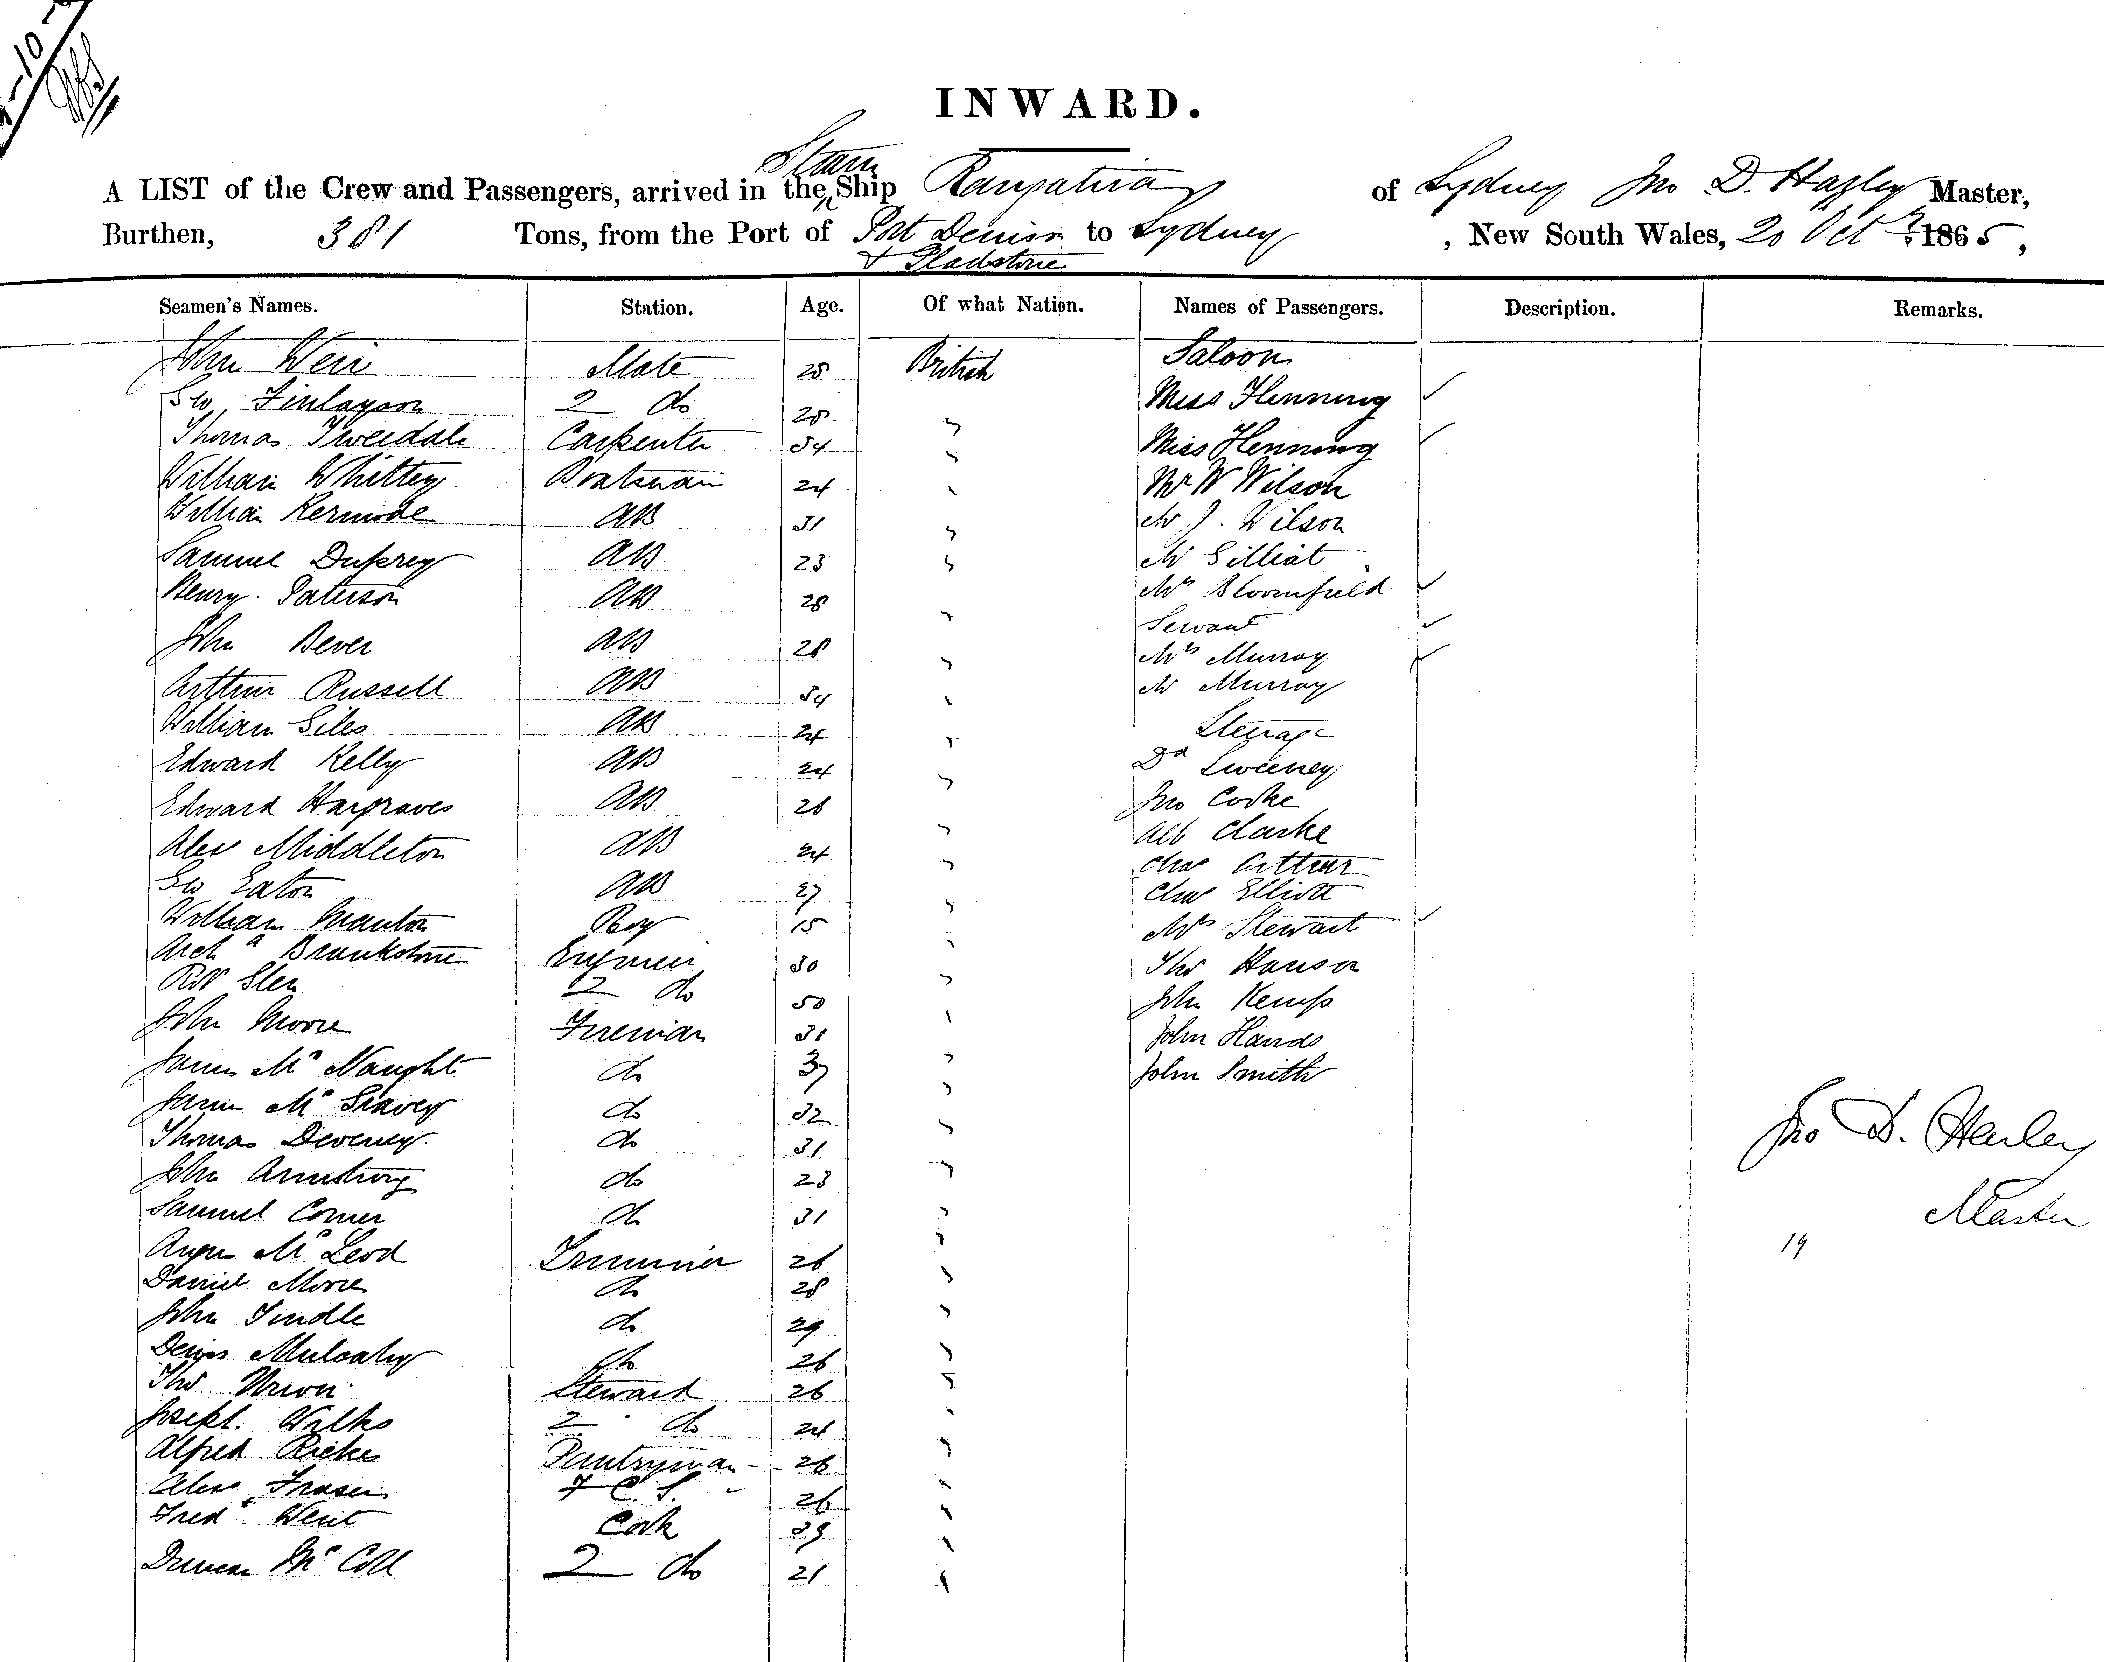 INWARD.
Steam
A LIST of the Crew and Passengers, arrived in the Ship Rangatira of Sydney Jno D. Hagley Master,
Burthen, 381 Tons, from the Port of Port Denison to Sydney , New South Wales, 20 Oct 1865,
& Gladstone
Seamen's Names. Station. Age. Of what Nation. Names of Passengers. Description. Remarks.
John Weir Mate 28 British Saloon
Geo Finlayson 2 do 28 " Miss Henning ✓
Thomas Tweedale Carpenter 34 " Miss Henning ✓
William Whittey Boatswain 24 " Mr W Wilson
William Kermode AB 31 " Mr J. Wilson
Samuel Duprey AB 23 " Mr Gilliat
Henry Paterson AB 28 " Mrs Bloomfield ✓
John Bever AB 28 " Servant ✓
Arthur Russell AB 34 " Mrs Murray ✓
William Giles AB 24 " Mr Murray
Edward Kelly AB 24 " Steerage
Edward Hargraves AB 26 " Dd Sweeney
Alex Middleton AB 24 " Jno Cooke
Geo Eaton AB 27 " Alb Clarke
William Manton Boy 15 " Chas Arthur
Archd Brunkstone Engineer 30 " Chas Elliott
Robt Glen 2 do 50 " Mrs Stewart ✓
John Moore Fireman 31 " Thos Hanson
James McNaught do 37 " John Kemp
James Mc do 32 " John Hands
Thomas Deveney do 31 " John Smith
John Armstrong do 23 "
Samuel Comer do 31 "
Angus McLeod Trimmer 26 "
Daniel Moore do 28 "
John Tindle do 29 "
Denis Mulcahy do 26 "
Thos Steward 26 "
Joseph Wilks 2 do 24 "
Alfred Ricks Pantryman 26 "
Alex Fraser F C S. 26 "
Fred Went Cook 39 "
Duncan McColl 2 do 21 "
Jno D. Hagley
Master
19